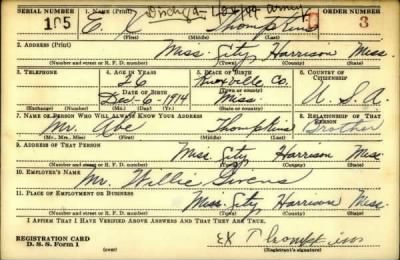 SERIAL NUMBER 1. NAME (Print) ORDER NUMBER
105 E. X Thompkins 3
(First) (Middle) (Last)
2. ADDRESS (Print)
Miss. City Harrison Miss.
(Number and street or R. F. D. number) (Town) (County) (State)
3. TELEPHONE 4. AGE IN YEARS 5. PLACE OF BIRTH 6. COUNTRY OF CITIZENSHIP
26 Co.
DATE OF BIRTH (Town or county)
Dec-6-1914 Miss. U. S. A.
(Exchange) (Number) (Mo.) (Day) (Yr.) (State or country)
7. NAME OF PERSON WHO WILL ALWAYS KNOW YOUR ADDRESS 8. RELATIONSHIP OF THAT PERSON
Mr. Abe Thompkins Brother
(Mr., Mrs., Miss) (First) (Middle) (Last)
9. ADDRESS OF THAT PERSON
Miss. City Harrison Miss.
(Number and street or R. F. D. number) (Town) (County) (State)
10. EMPLOYER'S NAME
Mr. Willie Givens
11. PLACE OF EMPLOYMENT OR BUSINESS
Miss. City Harrison Miss.
(Number and street or R. F. D. number) (Town) (County) (State)
I AFFIRM THAT I HAVE VERIFIED ABOVE ANSWERS AND THAT THEY ARE TRUE.
REGISTRATION CARD
D. S. S. Form 1 (over) EX Thompkins
(Registrant's signature)